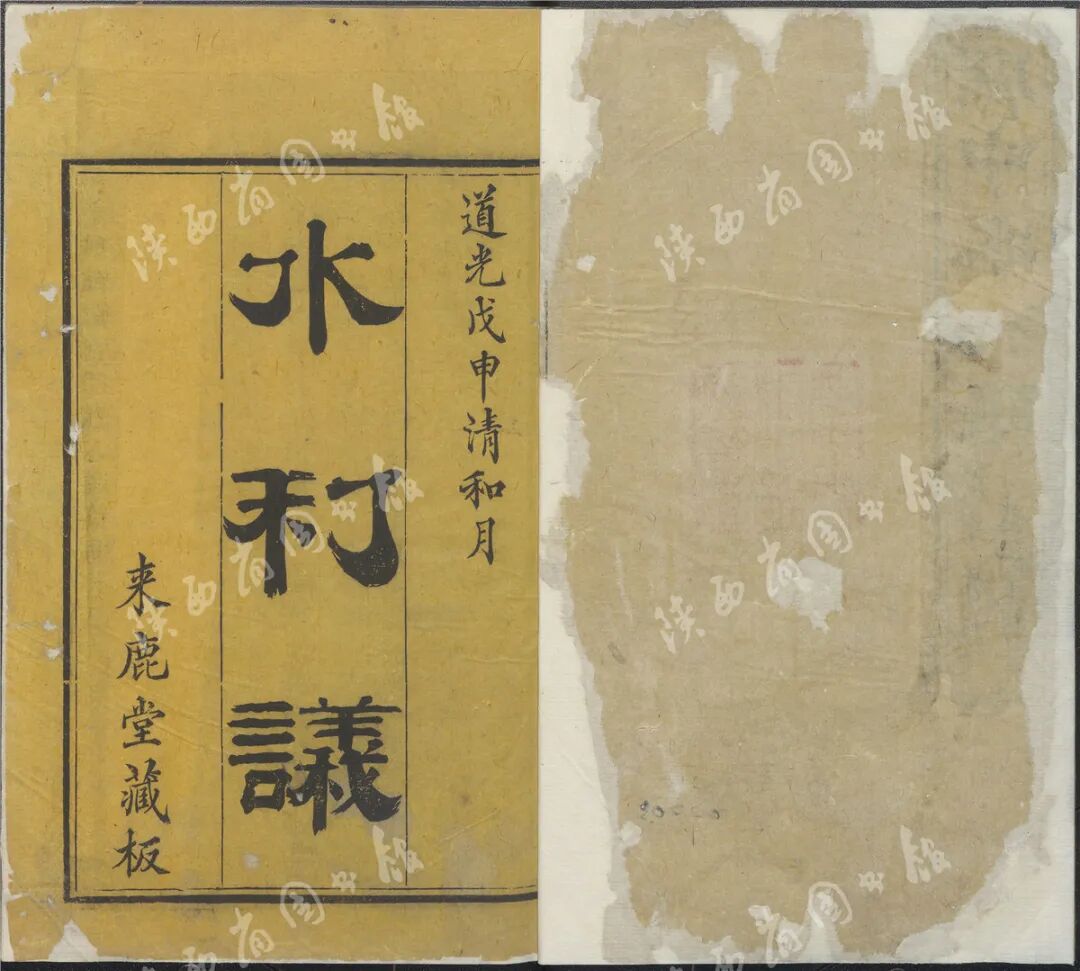 道光戊申清和月
水利議
来鹿堂藏板
陕西省图书馆